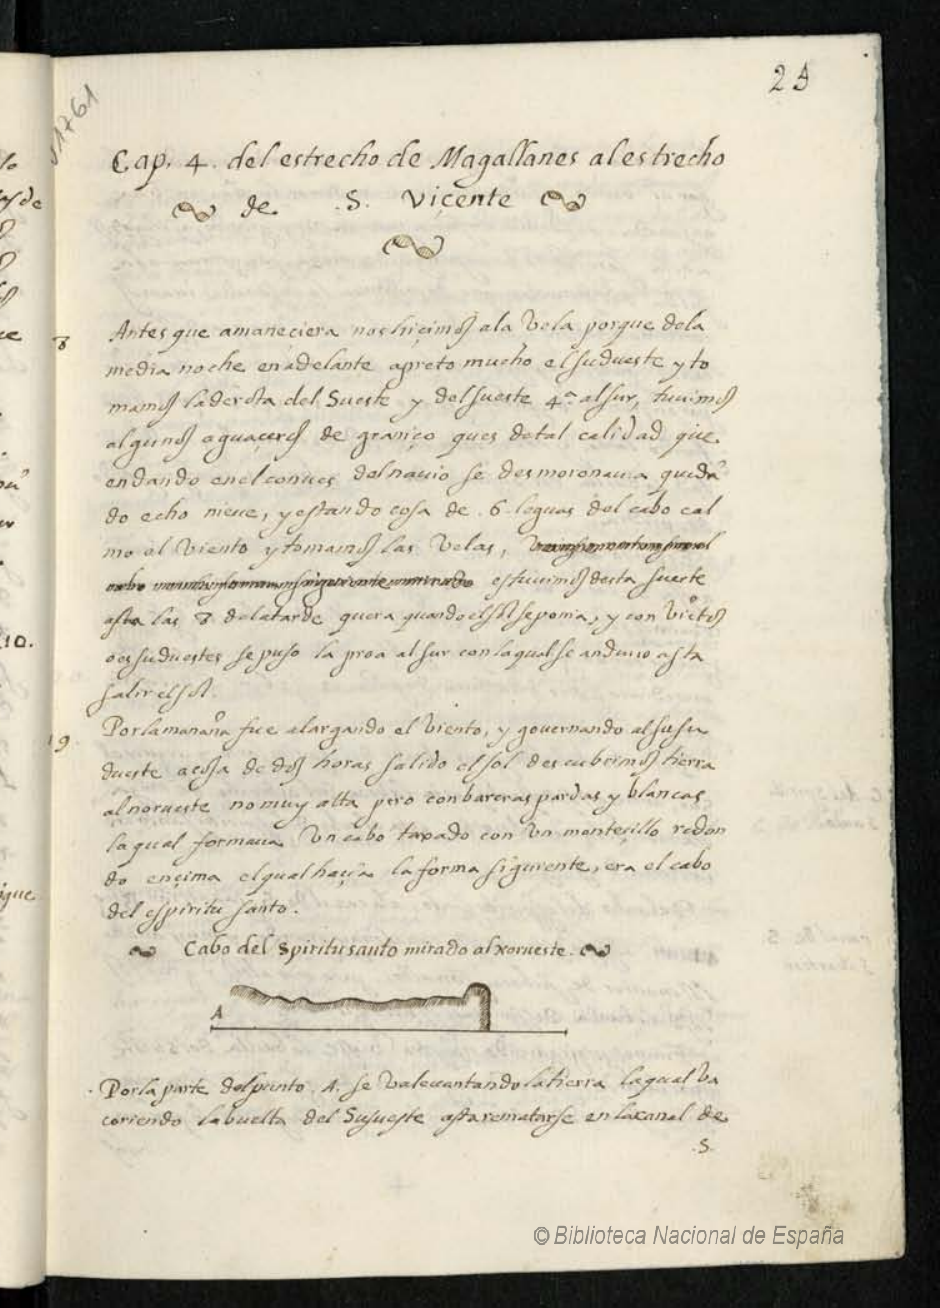 23
J 1761
Cap. 4. del estrecho de Magallanes al estrecho
de .S. Viçente
8 Antes que amaneçiera nos hiçimos ala Vela porque dela
media noche enadelante apreto mucho el sudueste y to
mamos laderota del Sueste y del sueste 4ª al sur, tuuimos
algunos aguaçeros de graniço ques detal calidad que
endando enel conues del nauio se desmoronaua quedã
do echo nieue, y estando cosa de .6. leguas del cabo cal
mo el Viento y tomamos las Velas, estuuimos desta suerte
asta las 8 delatarde quera quando el sol se ponia, y con Viẽtos
oes suduestes se puso la proa al sur con laqual se anduuo asta
salir el sol.
19 Porlamanaña fue alargando el Viento, y gouernando al susu
dueste acosa de dos horas salido el sol descubrimos tierra
al norueste no muy alta pero con bareras pardas y blancas
la qual formaua Vn cabo taxado con Vn monteçillo redon
do ençima el qual haçia la forma siguiente, era el cabo
del espiritu santo.
Cabo del Spiritusanto mirado al Norueste.
A
Por la parte del punto .A. se Valeuantando la tierra laqual Va
coriendo labuelta del Susueste asta rematarse en la canal de
.S.
© Biblioteca Nacional de España